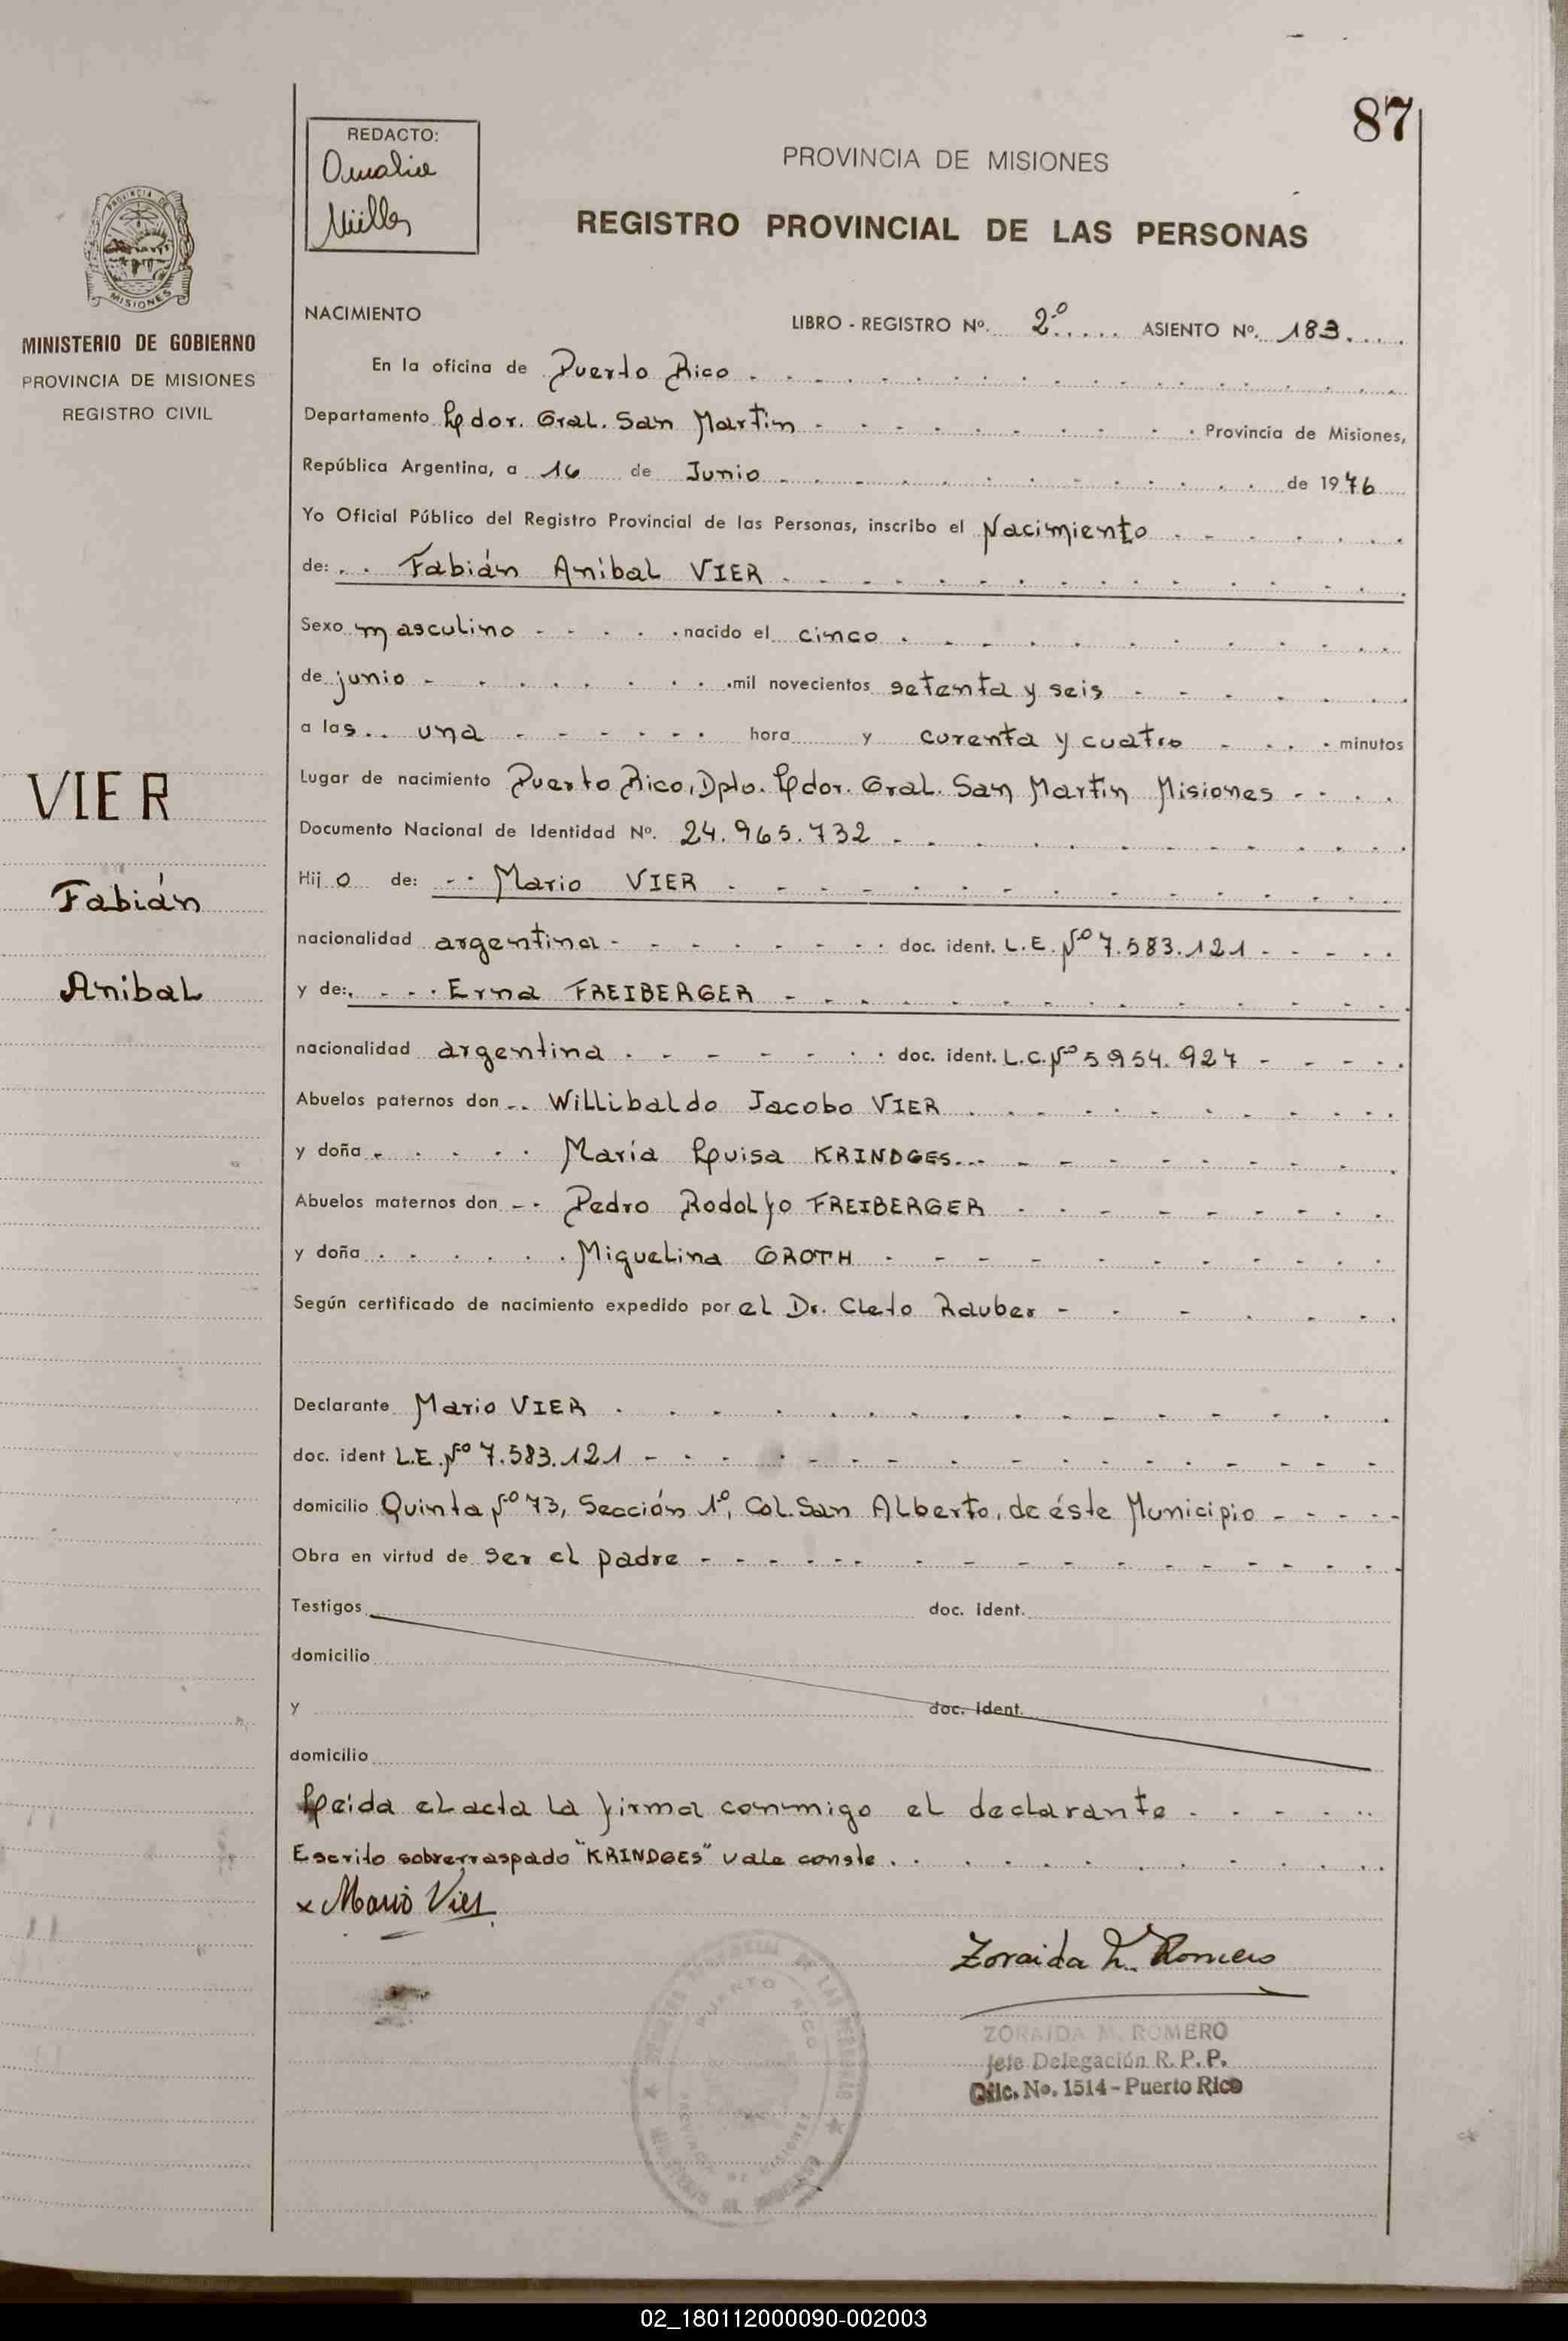 87
REDACTO:
Amalia
Müller
PROVINCIA DE MISIONES
REGISTRO PROVINCIAL DE LAS PERSONAS
MISIONES
MINISTERIO DE GOBIERNO
PROVINCIA DE MISIONES
REGISTRO CIVIL
VIER
Fabián
Anibal
NACIMIENTO LIBRO - REGISTRO Nº. 2º ASIENTO Nº. 183
En la oficina de Puerto Rico
Departamento Ldor. Gral. San Martin Provincia de Misiones,
República Argentina, a 16 de Junio de 1976
Yo Oficial Público del Registro Provincial de las Personas, inscribo el Nacimiento
de: Fabián Anibal VIER
Sexo masculino nacido el cinco
de junio mil novecientos setenta y seis
a las una hora y curenta y cuatro minutos
Lugar de nacimiento Puerto Rico, Dpto. Ldor. Gral. San Martin Misiones
Documento Nacional de Identidad Nº. 24.965.732
Hijo de: Mario VIER
nacionalidad argentina doc. ident. L.E. Nº 7.583.121
y de: Erna FREIBERGER
nacionalidad argentina doc. ident. L.C. Nº 5954.927
Abuelos paternos don Willibaldo Jacobo VIER
y doña María Luisa KRINDGES
Abuelos maternos don Pedro Rodolfo FREIBERGER
y doña Miguelina GROTH
Según certificado de nacimiento expedido por el Dr. Cleto Rauber
Declarante Mario VIER
doc. ident L.E. Nº 7.583.121
domicilio Quinta Nº 73, Sección 1º, Col. San Alberto, de éste Municipio
Obra en virtud de ser el padre
Testigos doc. ident.
domicilio
y doc. ident.
domicilio
Leída el acta la firma conmigo el declarante
Escrito sobrerraspado "KRINDGES" vale conste
x Mario Vier
Zoraida M. Romero
ZORAIDA M. ROMERO
Jefe Delegación R. P. P.
Ofic. No. 1514 - Puerto Rico
02_180112000090-002003